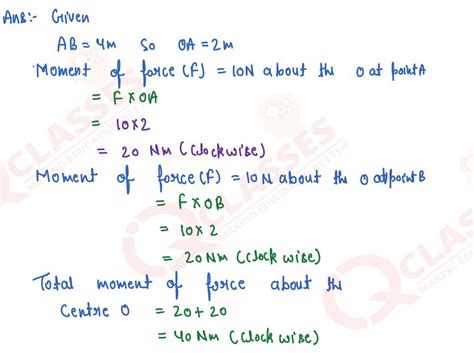 Ans:- Given
AB = 4m So OA = 2m
Moment of force (F) = 10N about the O at point A
= F × OA
= 10×2
= 20 Nm (Clockwise)
Moment of force (F) = 10N about the O at point B
= F × OB
= 10 × 2
= 20 Nm (Clock wise)
Total moment of force about the
Centre O = 20 + 20
= 40 Nm (Clock wise)
CLASSES
MAKING EDUCATION BETTER
CLASSES